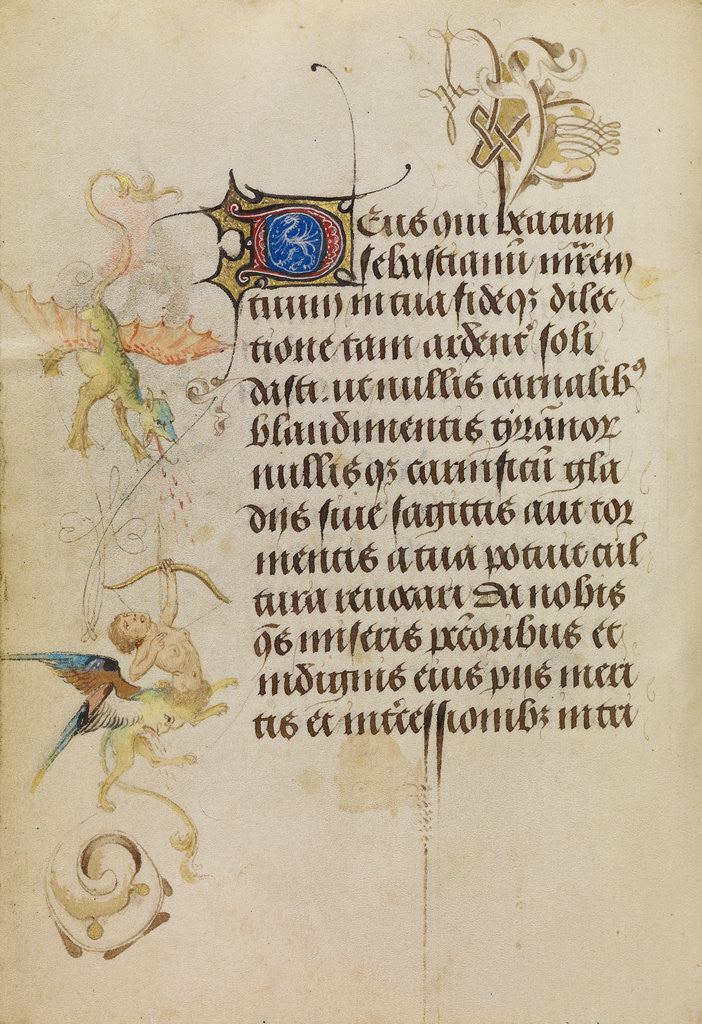 Deus qui beatum
sebastianū mr̄em
tuum in tua fideqz dilec
tione tam ardent᾽ soli
dasti . ut nullis carnalibꝰ
blandimentis tyrānor
nullisqz carnificū gla
diis siue sagittis aut tor
mentis a tua potuit cul
tura reuocari Da nobis
q̄s miseris pcc̄oribus et
indignis eius piis meri
tis et int̄cessionibz in tri